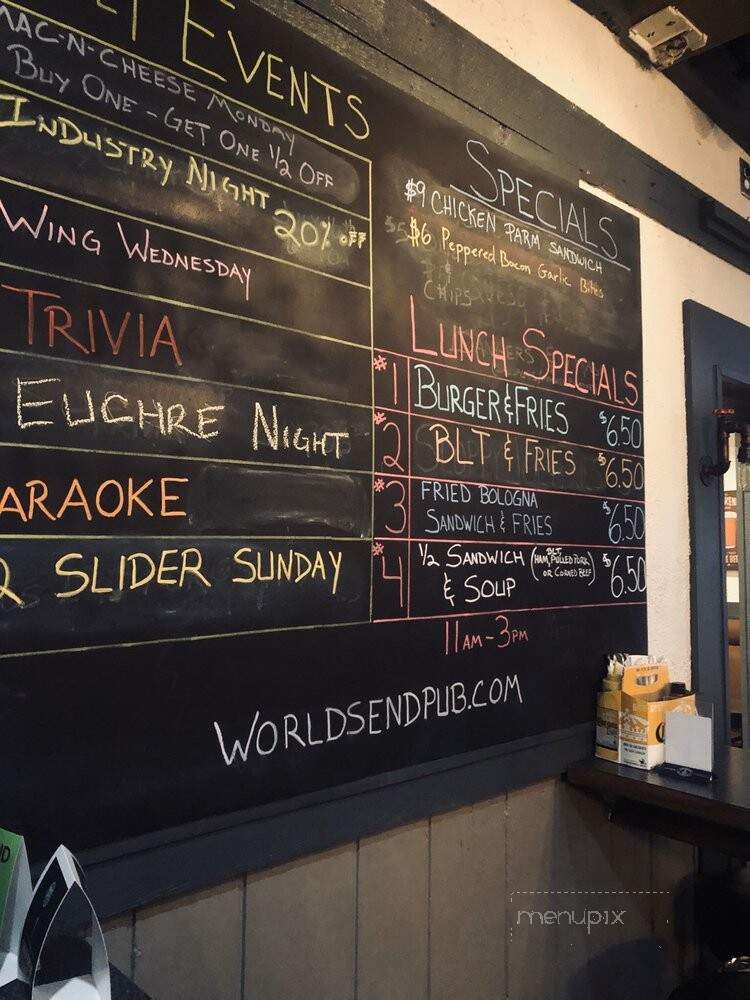 EVENTS
MAC-N-CHEESE MONDAY
BUY ONE - GET ONE 1/2 OFF
INDUSTRY NIGHT
20% OFF
WING WEDNESDAY
TRIVIA
EUCHRE NIGHT
ARAOKE
SLIDER SUNDAY
SPECIALS
$9 CHICKEN PARM SANDWICH
$6 Peppered Bacon Garlic Bites
CHIPS
LUNCH SPECIALS
#1 BURGER & FRIES $6.50
#2 BLT & FRIES $6.50
#3 FRIED BOLOGNA
SANDWICH & FRIES $6.50
#4 1/2 SANDWICH (HAM, BLT, PULLED PORK,
OR CORNED BEEF)
& SOUP $6.50
11AM-3PM
WORLDSENDPUB.COM
menupix